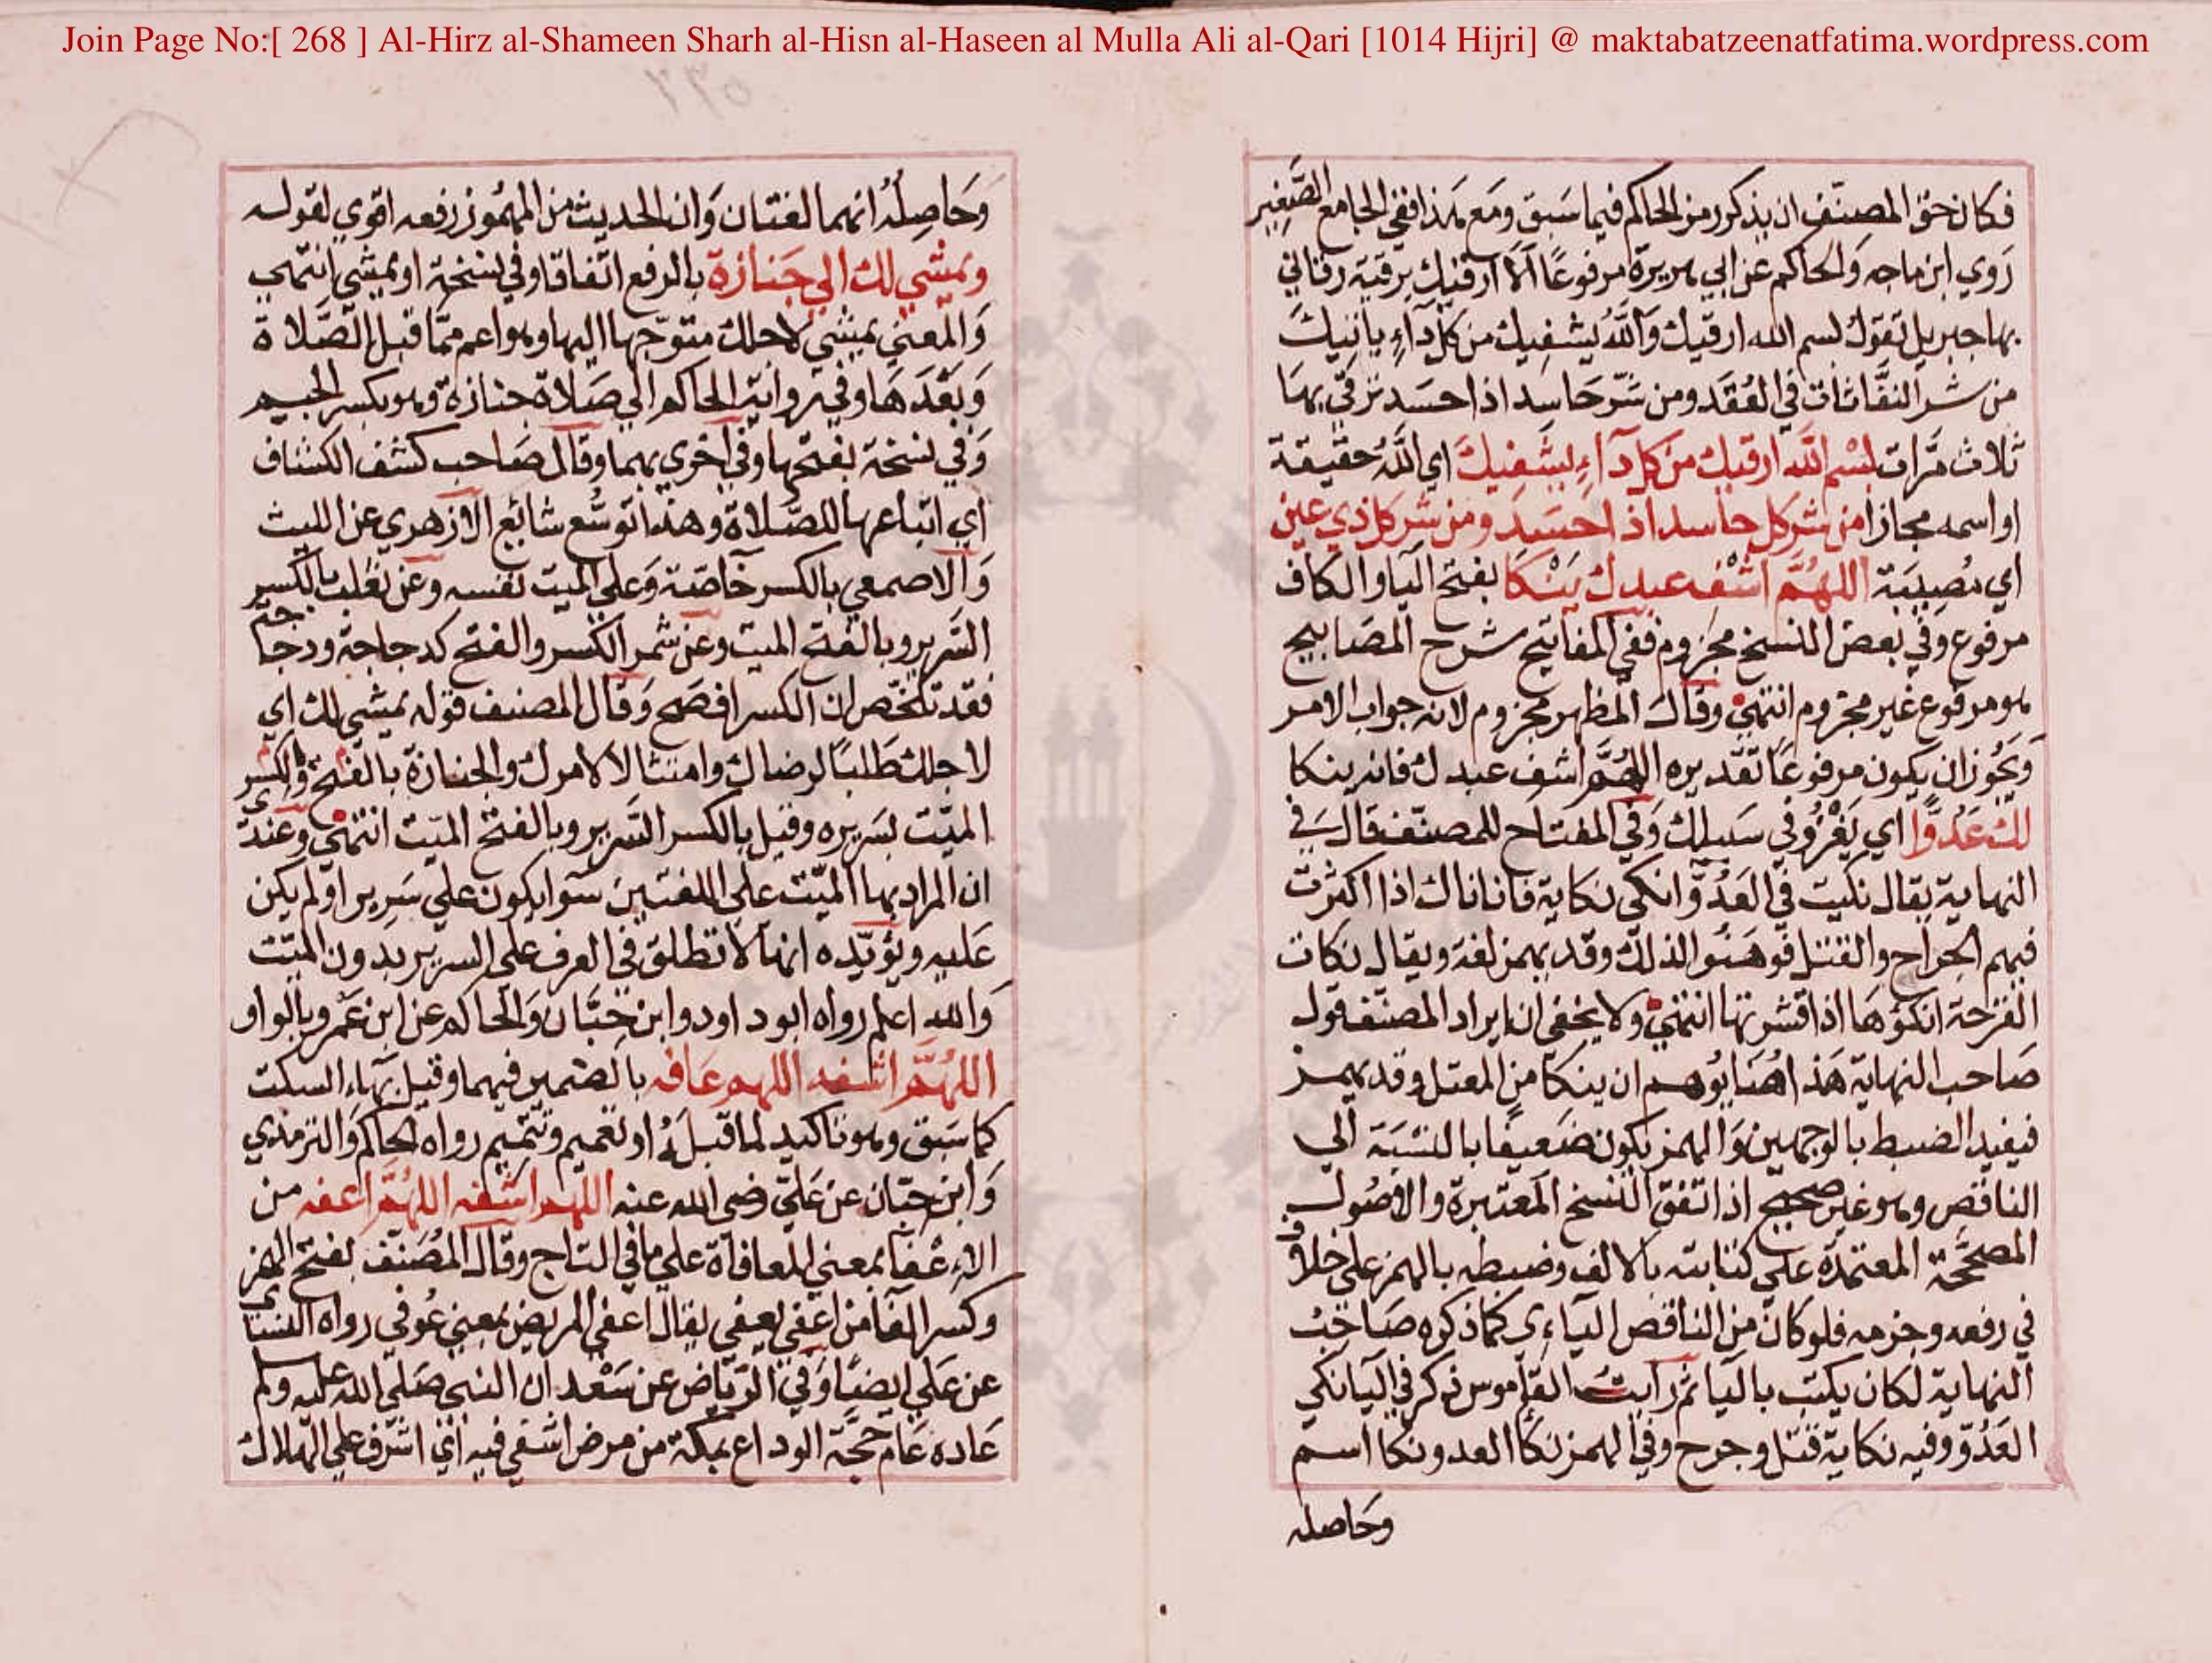 Join Page No:[ 268 ] Al-Hirz al-Shameen Sharh al-Hisn al-Haseen al Mulla Ali al-Qari [1014 Hijri] @ maktabatzeenatfatima.wordpress.com
فكان حق المصنف ان يذكر رمز الحاكم فيما سبق ومع هذا ففي الجامع الصغير
روي ابن ماجه والحاكم عن ابي هريرة مرفوعا الا ارقيك برقية رقاني
بها جبريل تقول بسم الله ارقيك والله يشفيك من كل داء يأتيك
من شر النفاثات في العقد ومن شر حاسد اذا حسد ترقي بها
ثلاث مرات بسم الله ارقيك من كل داء يشفيك اي الله حقيقة
او اسمه مجازا من شر كل حاسد اذا حسد ومن شر كل ذي عين
اي مصيبة اللهم اشفه عبدك ينكا بفتح اليا والكاف
مرفوع وفي بعض النسخ مجزوم ففي المفاتيح شرح المصابيح
هو مرفوع غير مجزوم انتهي وقال المظهر مجزوم لانه جواب الامر
ويجوز ان يكون مرفوعا تقديره اللهم اشف عبدك فانه ينكا
لك عدوا اي يغزو في سبيلك وفي المفتاح للمصنف قال في
النهاية يقال نكيت في العدو انكي نكاية فانا ناك اذا اكثرت
فيهم الجراح والقتل فوهنوا لذلك وقد يهمز لغة ويقال نكات
القرحة انكؤها اذا قشرتها انتهي ولا يخفي ان ايراد المصنف قول
صاحب النهاية هذا هنا يوهم ان ينكا من المعتل وقد يهمز
فيفيد الضبط بالوجهين والهمز يكون ضعيفا بالنسبة الي
الناقص وهو غير صحيح اذ اتفق النسخ المعتبرة والاصول
المصححة المعتمدة علي كتابته بالالف وضبطه بالهمز علي خلاف
في رفعه وجزمه فلو كان من الناقص الياءي كما ذكره صاحب
النهاية لكان يكتب باليا ثم رايت القاموس ذكر في اليا نكي
العدو وفيه نكاية قتل وجرح وفي الهمز نكا العدو نكا اسم
وحاصله
وحاصله انهما لغتان وان الحديث من المهموز رفعه اقوي لقوله
ويمشي لك الي جنازة بالرفع اتفاقا وفي نسخة او يمشي انتهي
والمعني يمشي لاجلك متوجها اليها وهو اعم مما قبل الصلاة
وبعدها وفي رواية الحاكم الي صلاة جنازة وهو بكسر الجيم
وفي نسخة بفتحها وفي اخري بهما وقال صاحب كشف الكشاف
اي اتباعها للصلاة وهذا توسع شائع الازهري عن الليث
والاصمعي بالكسر خاصة وعلي الميت نفسه وعن ثعلب بالكسر
السرير وبالفتح الميت وعن شمر الكسر والفتح كدجاجة ودجاجة
فقد تلخص ان الكسر افصح وقال المصنف قوله يمشي لك اي
لاجلك طلبا لرضاك وامتثالا لامرك والجنازة بالفتح والكسر
الميت بسريره وقيل بالكسر السرير وبالفتح الميت انتهي وعندي
ان المراد بها الميت علي اللغتين سوا يكون علي سرير او لم يكن
عليه ويؤيده انها لا تطلق في العرف علي السرير بدون الميت
والله اعلم رواه ابو داود وابن حبان والحاكم عن ابن عمرو بالواو
اللهم اشفه اللهم عافه بالضمير فيهما وقيل بهاء السكت
كما سبق وهو تاكيد لما قبله او تعميم وتتميم رواه الحاكم والترمذي
وابن حبان عن علي رضي الله عنه اللهم اشفه اللهم اعفه من
الاعفا بمعني المعافاة علي ما في التاج وقال المصنف بفتح الهمز
وكسر الفا من اعفي يعفي يقال اعفي المريض بمعني عوفي رواه النسائي
عن علي ايضا وفي الرياض عن سعد ان النبي صلي الله عليه وسلم
عاده عام حجة الوداع بمكة من مرض اشفي فيه اي اشرف علي الهلاك